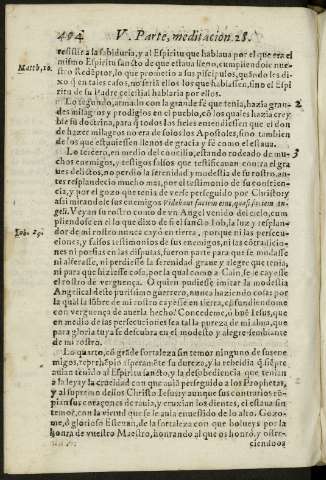 494 V. Parte, meditacion 28.
resistir a la sabiduria, y al Espiritu que hablaua por el que era el
Matth, 10. mismo Espiritu sancto de que estaua lleno, cumpliendole nue-
stro Redẽptor, lo que prometio a sus discipulos, quãdo les di-
xo q̃ en tales casos, no seriã ellos los que hablassen, sino el Espi
ritu de su Padre celestial hablaria por ellos.
Lo segundo, armado con la grande fé que tenia, hazia gran- 2
des milagros y prodigios en el pueblo, cõ los quales hazia cree
ble su doctrina, para q̃ todos los fieles entendiessen que el don
de hazer milagros no era de solos los Apostoles, sino tambien
de los que estuuiessen llenos de gracia y fé como el estaua.
Lo tercero, en medio del concilio, estando rodeado de mu- 3
chos enemigos, y testigos falsos que testificauan contra el gra
ues delictos, no perdio la serenidad y modestia de su rostro, an-
tes resplandecio mucho mas, por el testimonio de su conscien-
cia, y por el gozo que tenia de verse perseguido por Christo: y
assi mirandole sus enemigos Videbant faciem eius, quasi faciem an-
geli. Veyan su rostro como de vn Angel venido del cielo, cum
pliendose en el lo que dixo de si el sancto Iob, la luz y resplan-
Iob. 29. dor de mi rostro nunca cayò en tierra, porque ni las persecu-
ciones, y falsos testimonios de sus enemigos, ni las cõtradicio-
nes ni porfias en las disputas, fueron parte para que se mudasse
ni alterasse, ni perdiesse la serenidad graue y alegre que tenia,
ni para que hiziesse cosa, por la qual como a Cain, se le cayesse
el rostro de verguença. O quien pudiesse imitar la modestia
Angelical deste purissimo guerrero, nunca haziendo cosa por
la qual la lũbre de mi rostro cayesse en tierra, cõfundiendome
con verguença de auerla hecho! Concedeme, ò buẽ Iesus, que
en medio de las persecuciones sea tal la pureza de mi alma, que
para gloria tuya se descubra en el modesto y alegre semblante
de mi rostro.
Lo quarto, cõ grãde fortaleza sin temor ninguno de sus ene
migos, reprehẽdio asperamẽte su dureza, y la rebeldia q̃ siẽpre
auian tenido al Espiritu sancto, y la desobediencia que tenian
a la ley, y la crueldad con que auiã perseguido a los Prophetas,
y al supremo dellos Christo Iesus: y aunque sus contrarios rõ-
pian sus coraçones de rauia, y cruxian los dientes, el estaua sin
temor, con la virtud que se le auia enuestido de lo alto. Gozo-
me, ò glorioso Esteuan, de la fortaleza con que bolueys por la
honra de vuestro Maestro, honrando al que os honrò, y ofre-
ciendoos